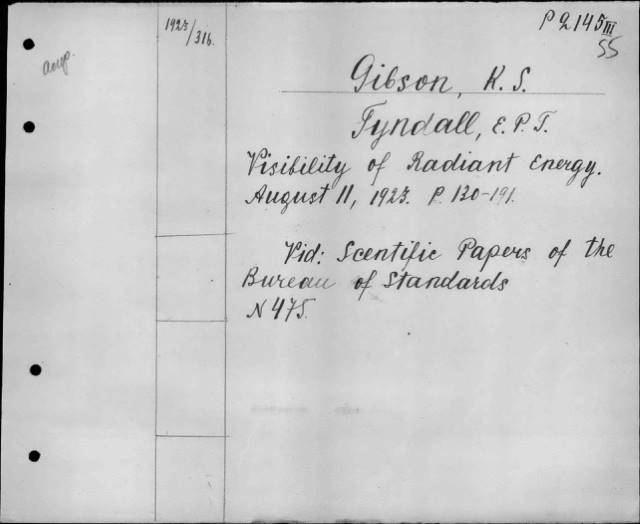 1923/316.
P 2145 III
55
Gibson, K. S.
Tyndall, E. P. T.
Visibility of Radiant Energy.
August 11, 1923. P. 130-191.
Vid: Scentific Papers of the
Bureau of Standards
N 475.